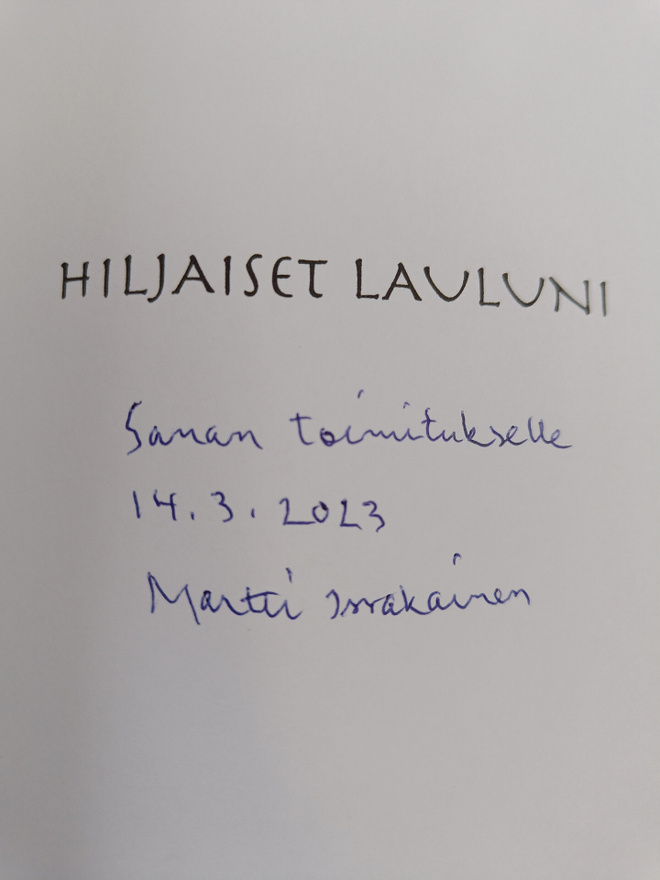 HILJAISET LAULUNI
Sanan toimitukselle
14.3.2023
Martti Issakainen